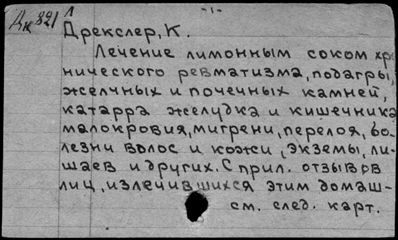 Дк 821
Л
-1-
Дрекслер, К.
Лечение лимонным соком хро
нического ревматизма, подагры,
желчных и почечных камней,
катарра желудка и кишечника
малокровия, мигрени, перелоя, бо-
лезни волос и кожи, экземы, ли-
шаев и других. С прил. отзывов
лиц, излечившихся этим домаш-
см. след. карт.